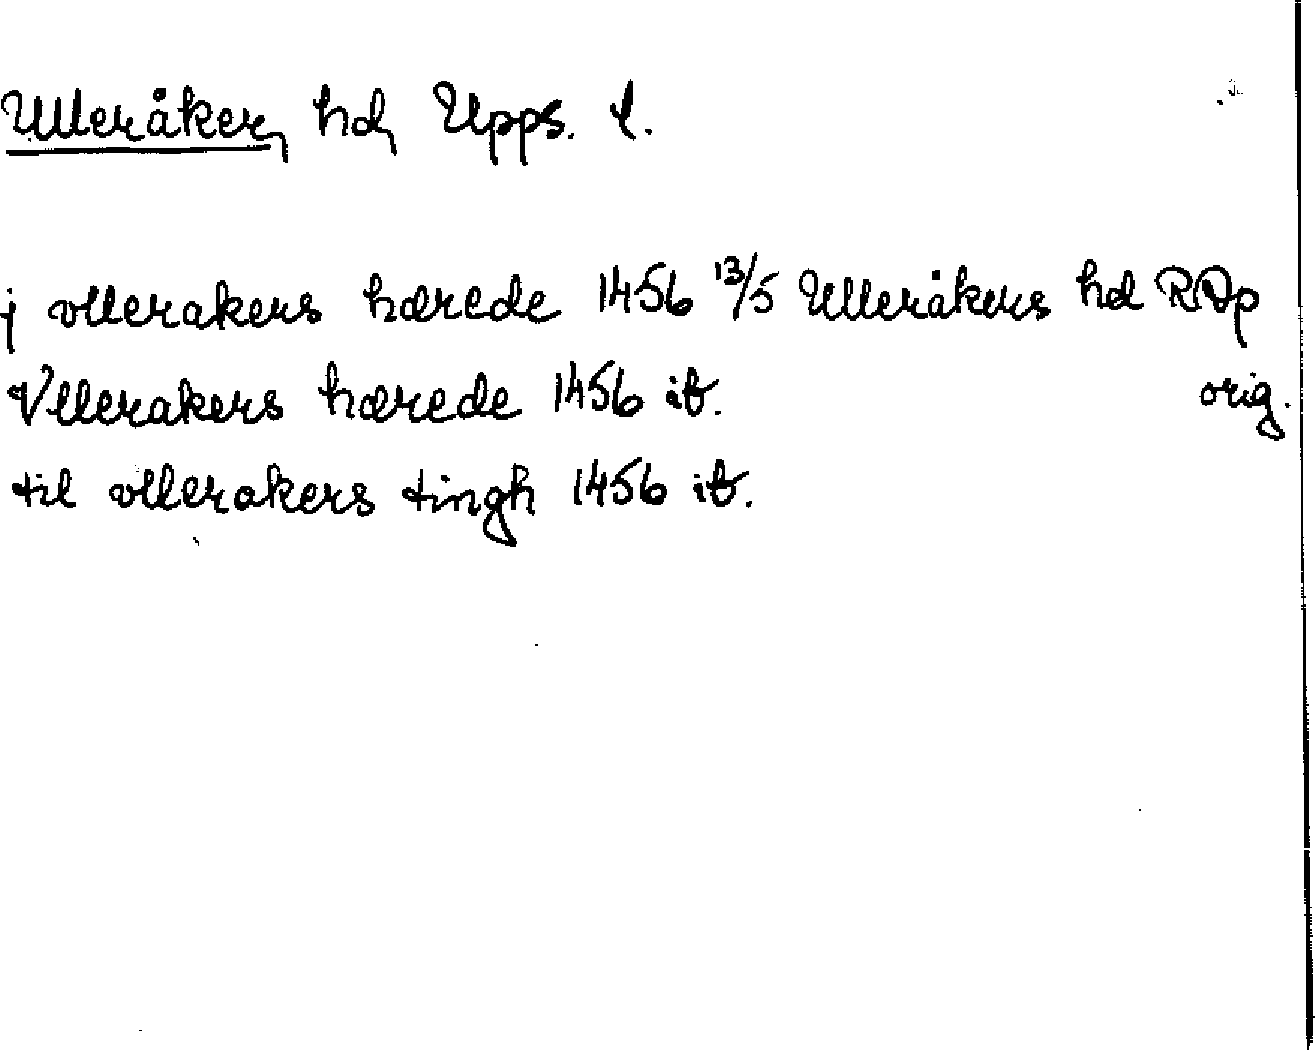 Ulleråker, hd, Upps. l.
j vllerakers hærede 1456 13/5 Ulleråkers hd RAp
Vllerakers hærede 1456 ib. orig.
til vllerakers tingh 1456 ib.